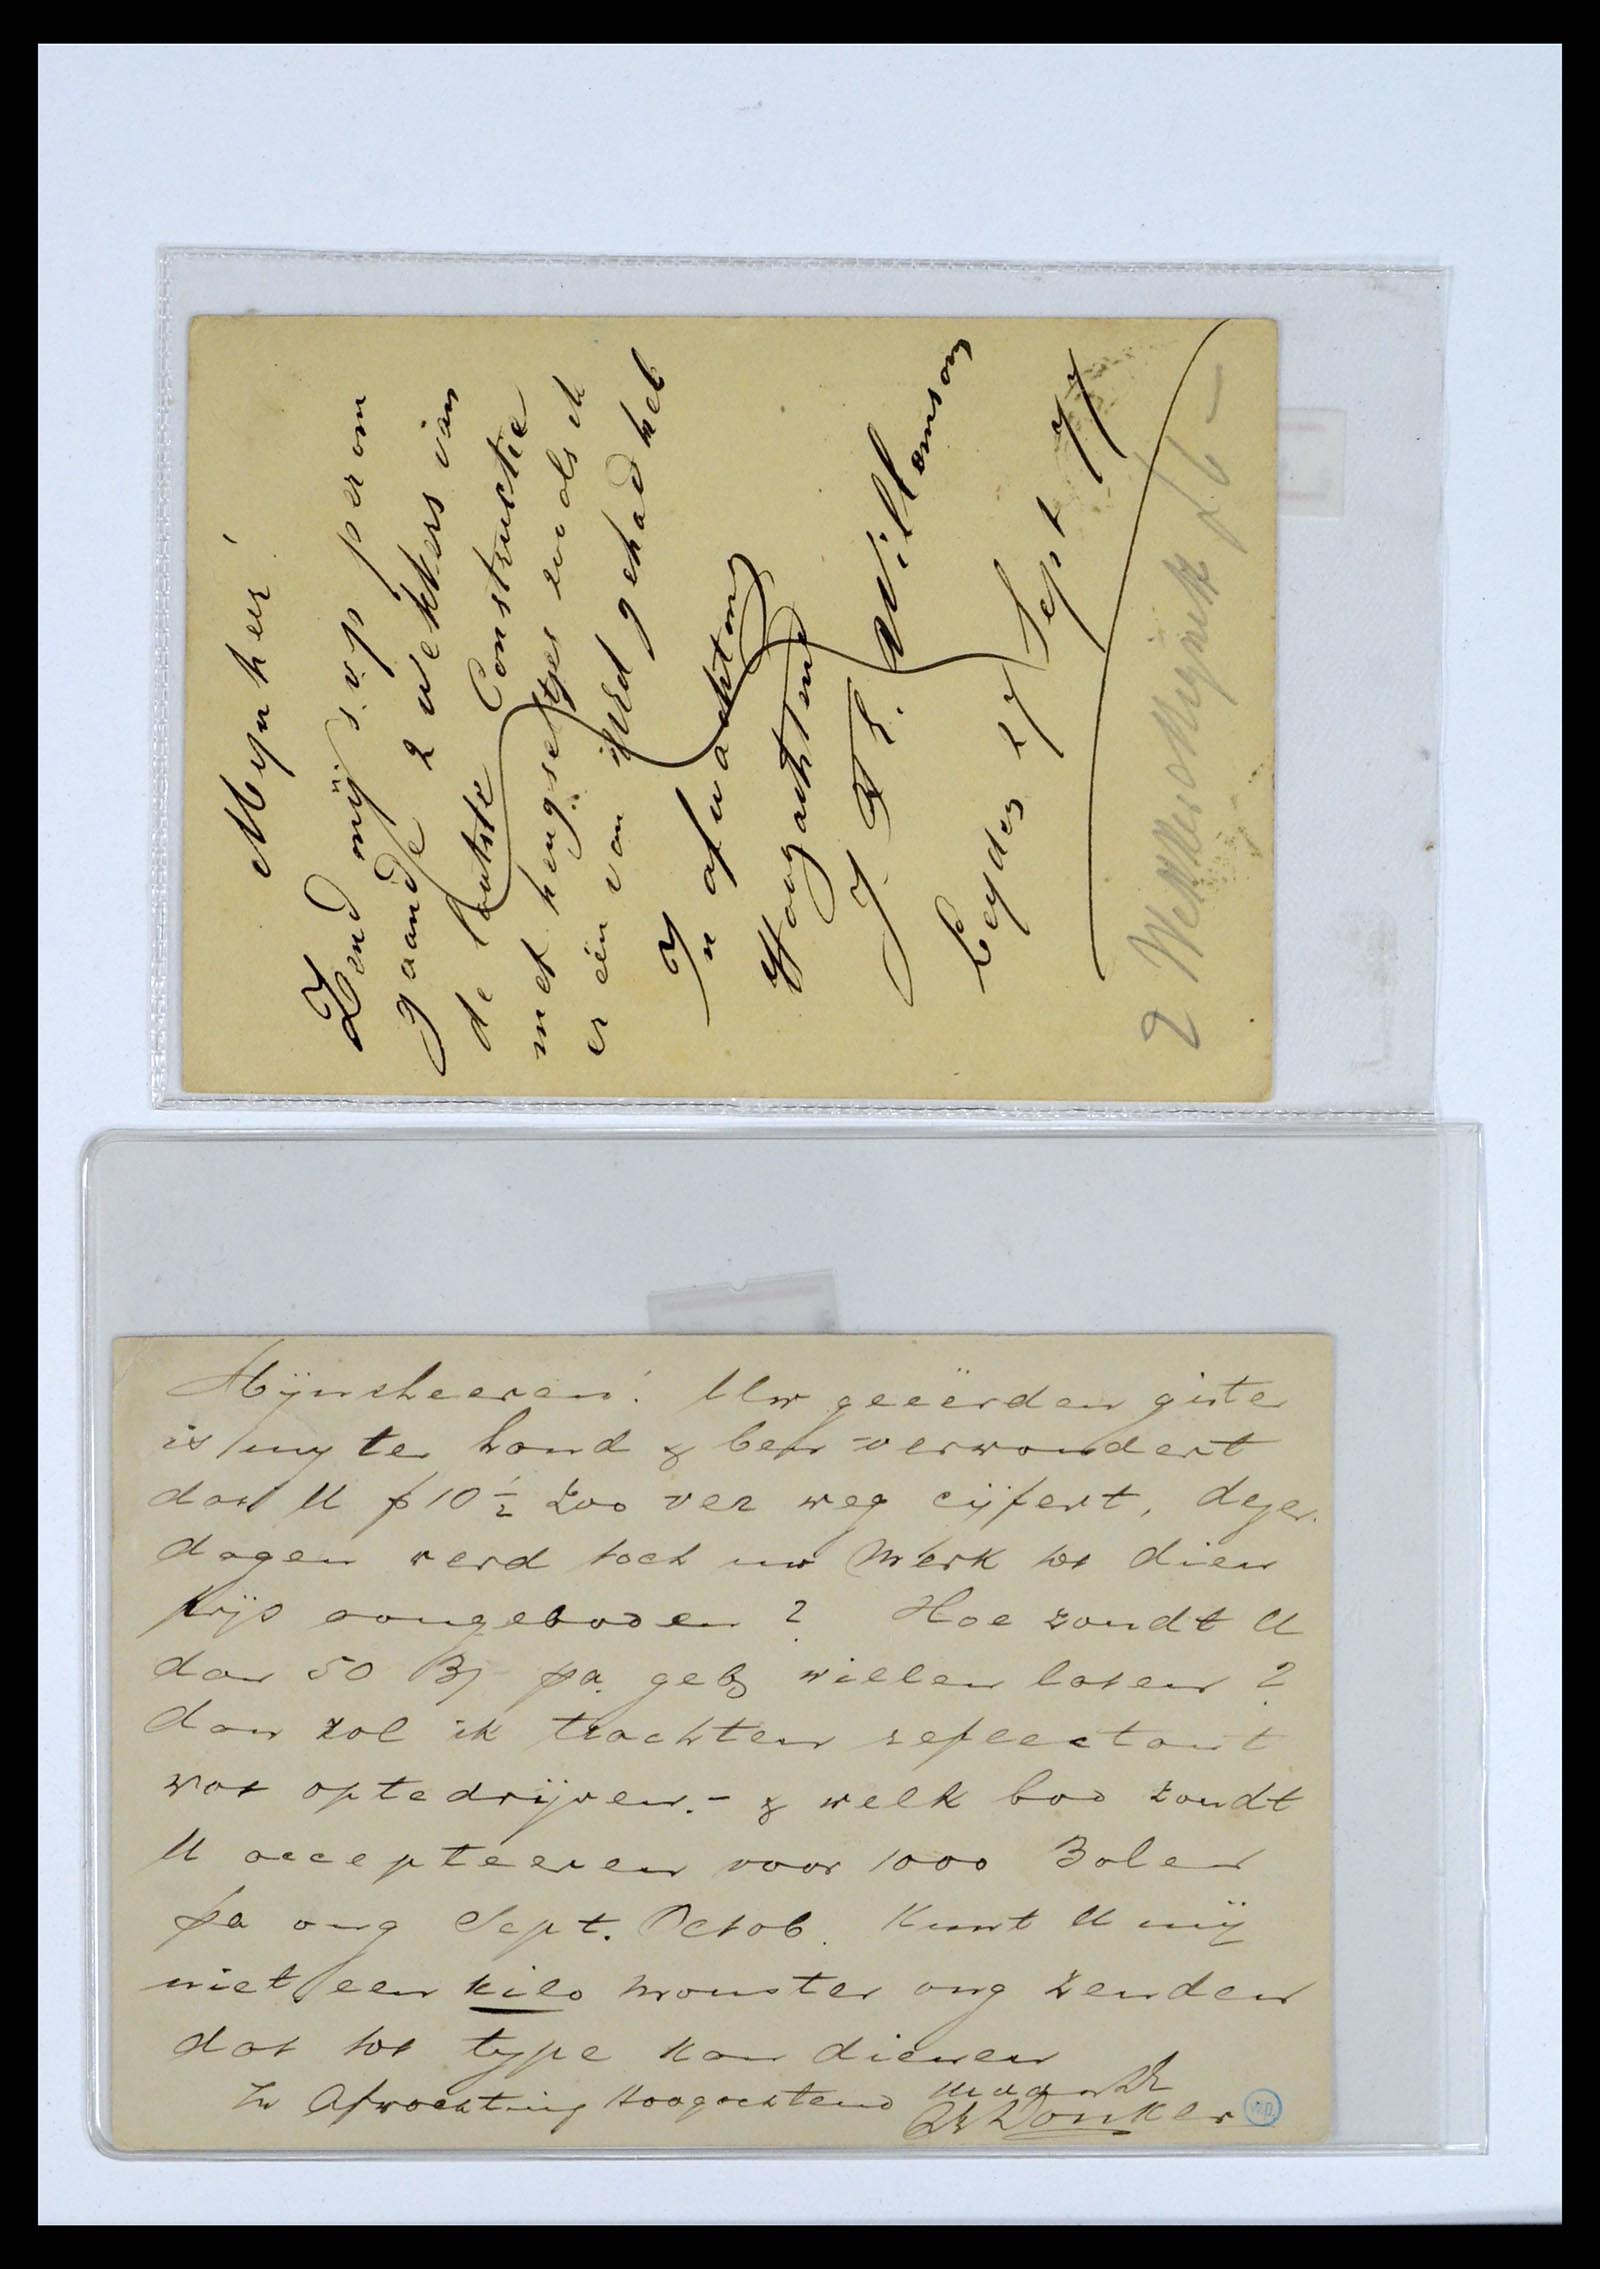 Mynheer!
Zend mij s.v.p per om
gaande 2 wekkers van
de laatste Constructie
met hengseltjes zooals ik
er één van UEd gehad heb
In afwachting
Hoogachtend
Willemson
Leyden 27 Sept 77
2 Wekkers f 6 –
Mijnheeren! Uw geëerden gister
is my ter hand & ben verwondert
dat U f 10 ½ zoo ver weg cijfert, dezer
dagen werd toch uw Merk tot dien
prijs aangeboden? Hoe zoudt U
dan 50 B/ pa. geb willen laten?
dan zal ik trachten reflectant
wat optedrijven. - & welk bod zoudt
U accepteeren voor 1000 Balen
pa ong Sept. Octob. Kunt U mij
niet een kilo monster ong zenden
dat tot type kan dienen
In Afwachting Hoogachtend
Donker